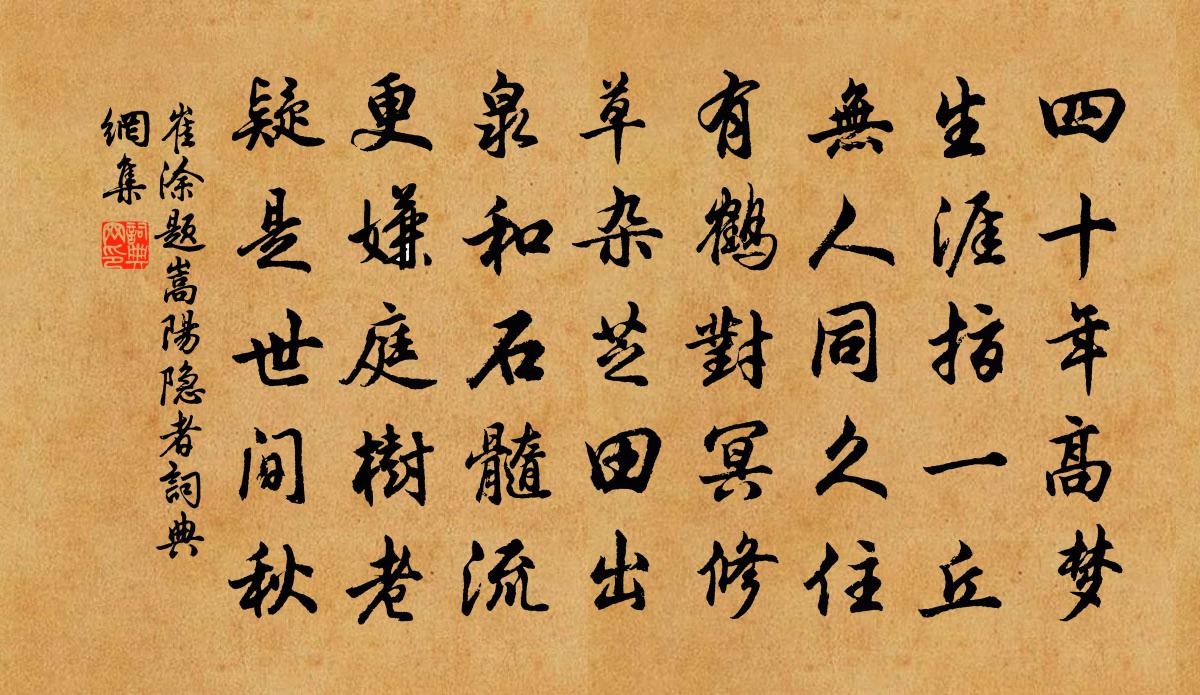 四十年高梦
生涯指一丘
無人同久住
有鶴對冥修
草杂芝田出
泉和石髓流
更嫌庭樹老
疑是世间秋
崔涂题嵩陽隐者詞典
網集
詞典网印